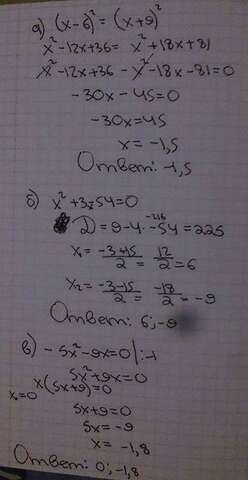 а) (x-6)² = (x+9)²
x²-12x+36 = x²+18x+81
x²-12x+36 - x²-18x-81=0
-30x-45=0
-30x=45
x=-1,5
Ответ: -1,5
б) x²+3x-54=0
D=9-4·-54=225
-216
x₁= -3+15/2 = 12/2 =6
x₂= -3-15/2 = -18/2 = -9
Ответ: 6; -9
в) -5x²-9x=0 |:-1
5x²+9x=0
x(5x+9)=0
x₁=0
5x+9=0
5x=-9
x=-1,8
Ответ: 0; -1,8